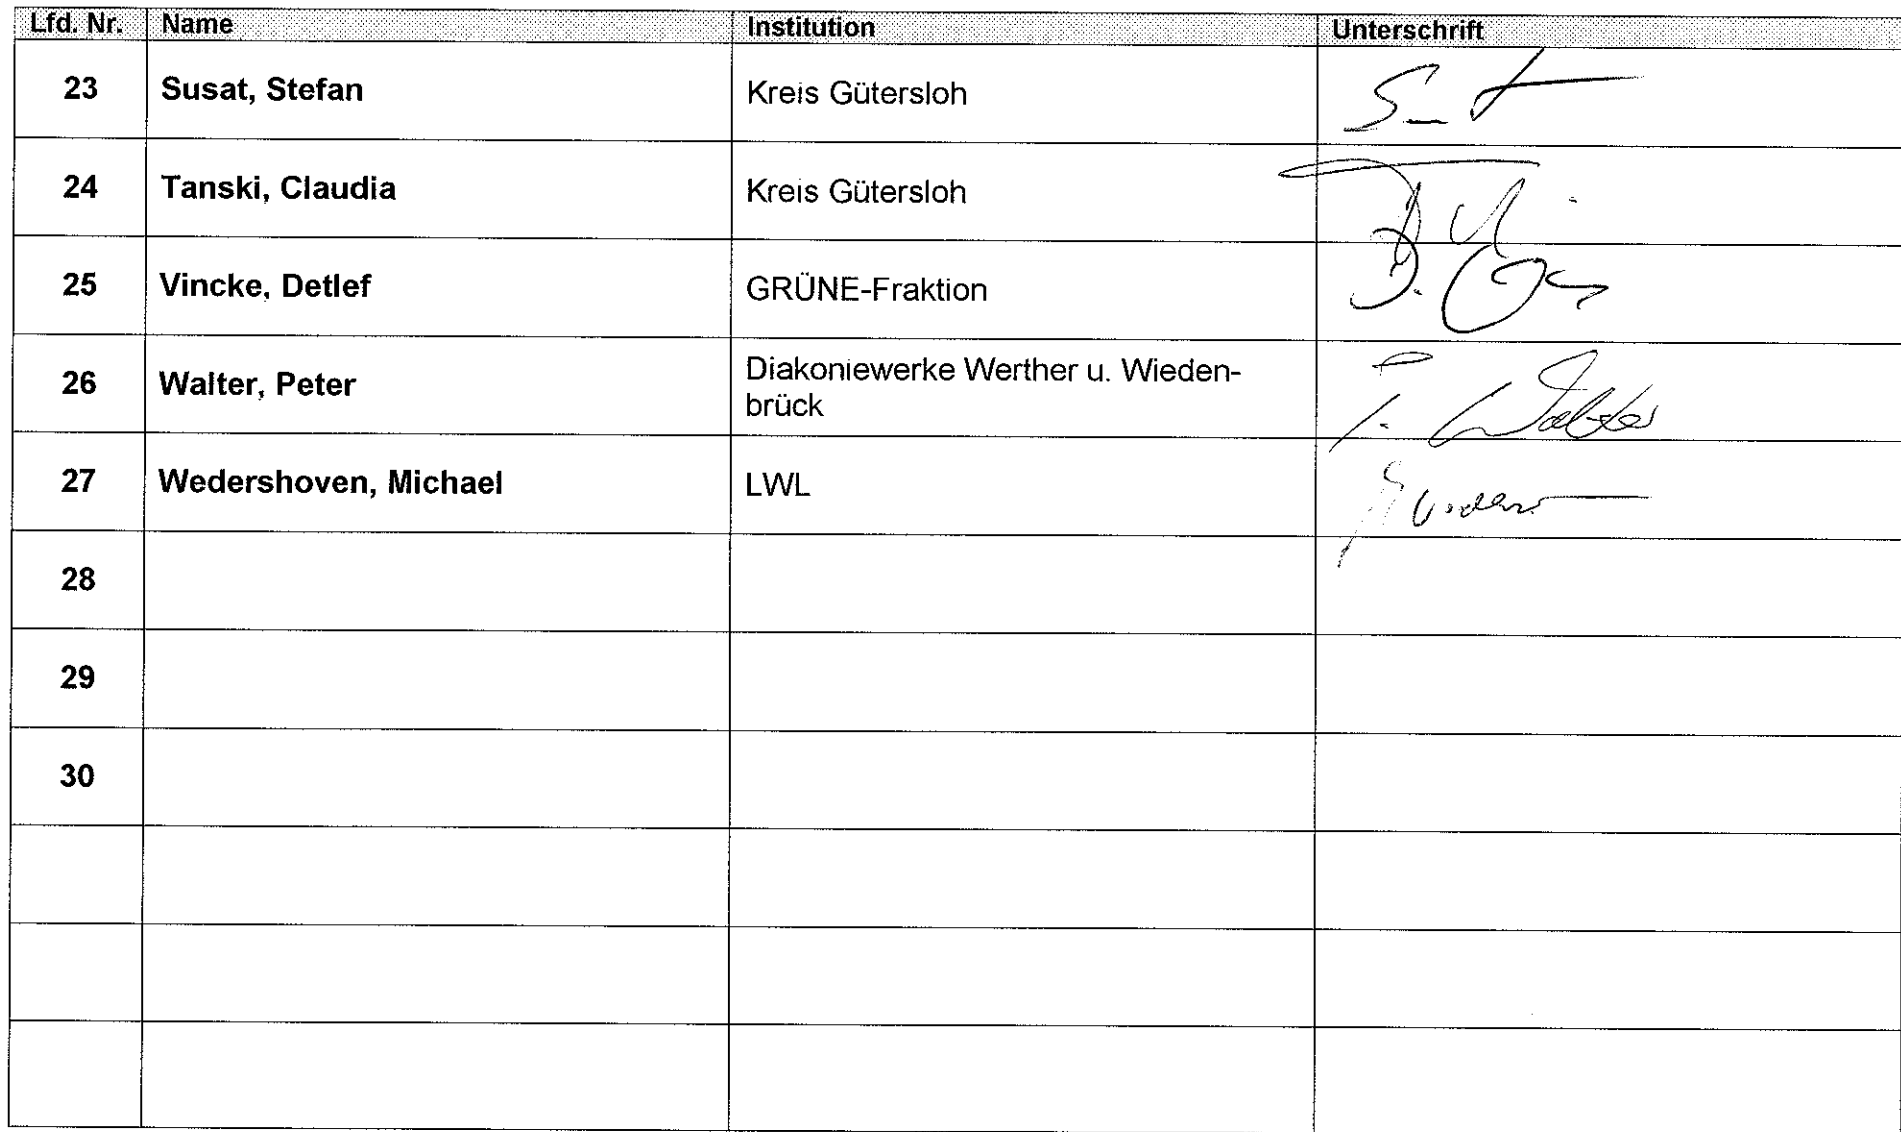 Lfd. Nr. Name Institution Unterschrift
23 Susat, Stefan Kreis Gütersloh
24 Tanski, Claudia Kreis Gütersloh
25 Vincke, Detlef GRÜNE-Fraktion
26 Walter, Peter Diakoniewerke Werther u. Wieden-
brück
27 Wedershoven, Michael LWL
28
29
30